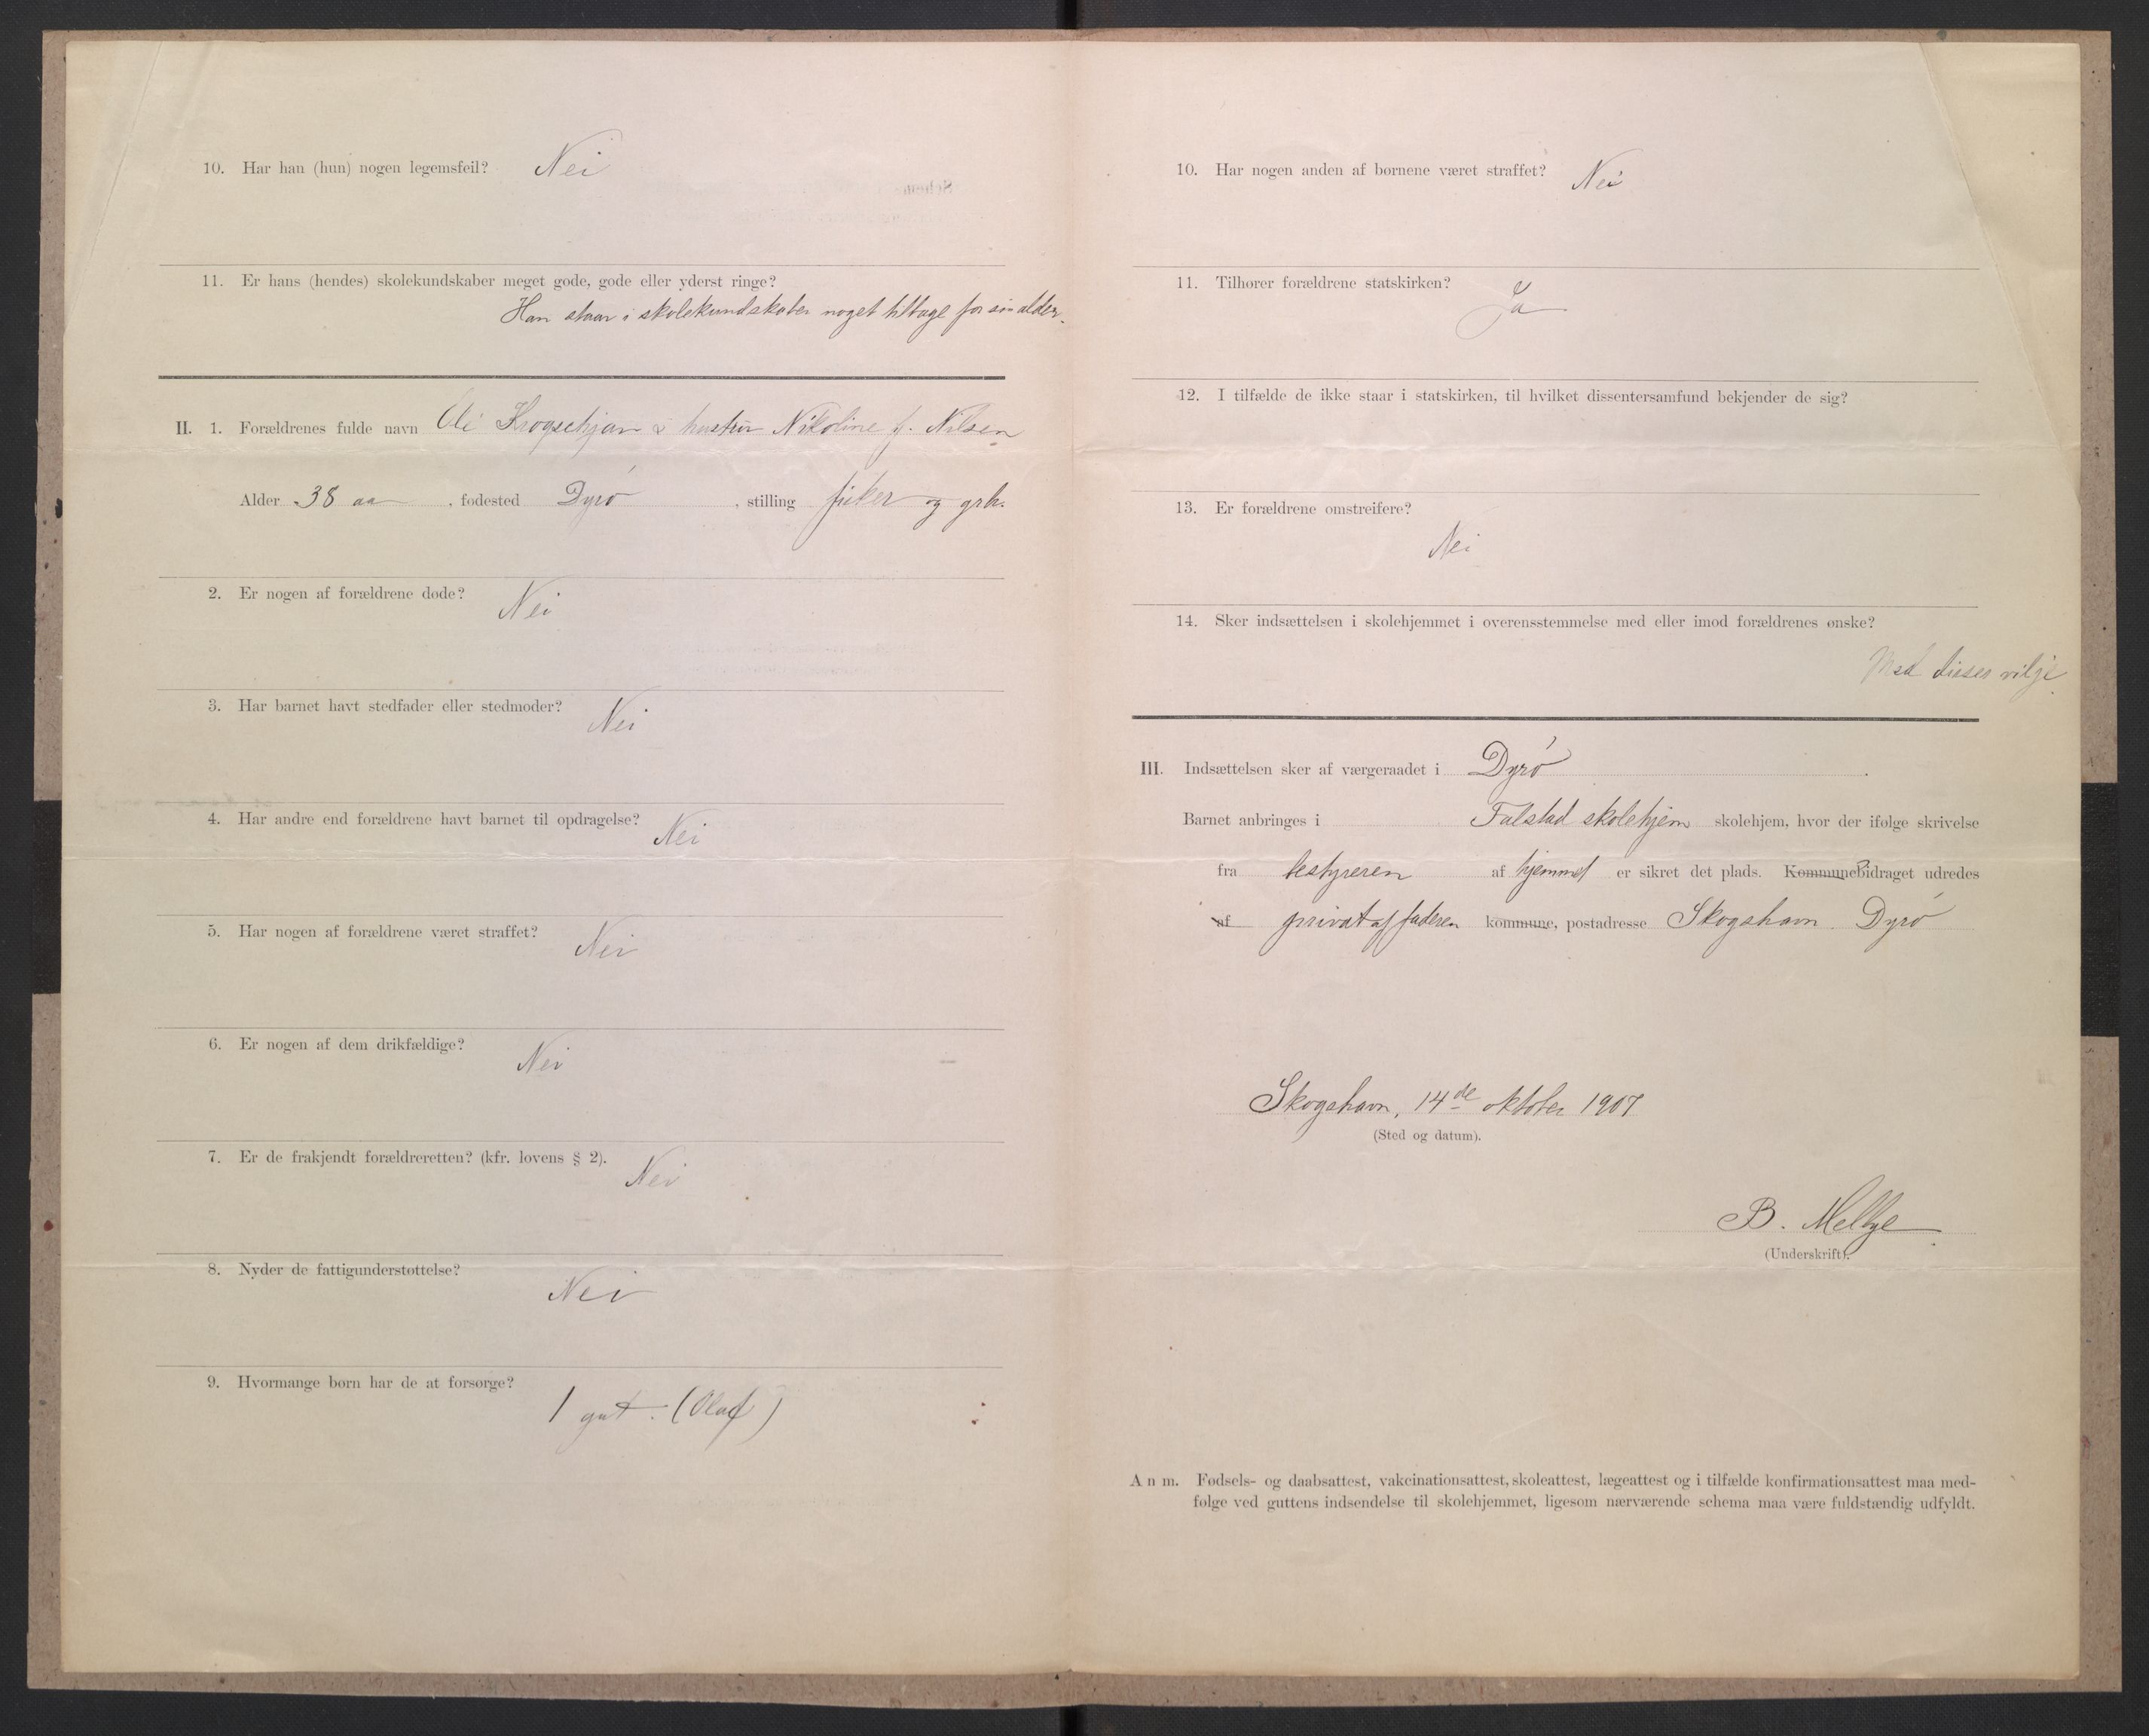 10. Har han (hun) nogen legemsfeil? Nei
11. Er hans (hendes) skolekundskaber meget gode, gode eller yderst ringe?
Han staar i skolekundskaber noget tilbage for sin alder.
II. 1. Forældrenes fulde navn Oli Krogsehjan & hustru Nikoline f. Nilsen
Alder 38 aa, fødested Dyrø, stilling fisker og grbr.
2. Er nogen af forældrene døde? Nei
3. Har barnet havt stedfader eller stedmoder? Nei
4. Har andre end forældrene havt barnet til opdragelse? Nei
5. Har nogen af forældrene været straffet? Nei
6. Er nogen af dem drikfældige? Nei
7. Er de frakjendt forældreretten? (kfr. lovens § 2). Nei
8. Nyder de fattigunderstøttelse? Nei
9. Hvormange børn har de at forsørge?
1 gut. (Olaf)
10. Har nogen anden af børnene været straffet? Nei
11. Tilhører forældrene statskirken? Ja
12. I tilfælde de ikke staar i statskirken, til hvilket dissentersamfund bekjender de sig?
13. Er forældrene omstreifere?
Nei
14. Sker indsættelsen i skolehjemmet i overensstemmelse med eller imod forældrenes ønske?
Med disses vilje.
III. Indsættelsen sker af værgeraadet i Dyrø.
Barnet anbringes i Falstad skolehjem skolehjem, hvor der ifølge skrivelse
fra bestyreren af hjemmet er sikret det plads. KommuneBidraget udredes
af privat af faderen kommune, postadresse Skogshavn Dyrø
Skogshavn, 14de oktober 1907
(Sted og datum).
B. Melbye
(Underskrift).
Anm. Fødsels- og daabsattest, vakcinationsattest, skoleattest, lægeattest og i tilfælde konfirmationsattest maa med-
følge ved guttens indsendelse til skolehjemmet, ligesom nærværende schema maa være fuldstændig udfyldt.